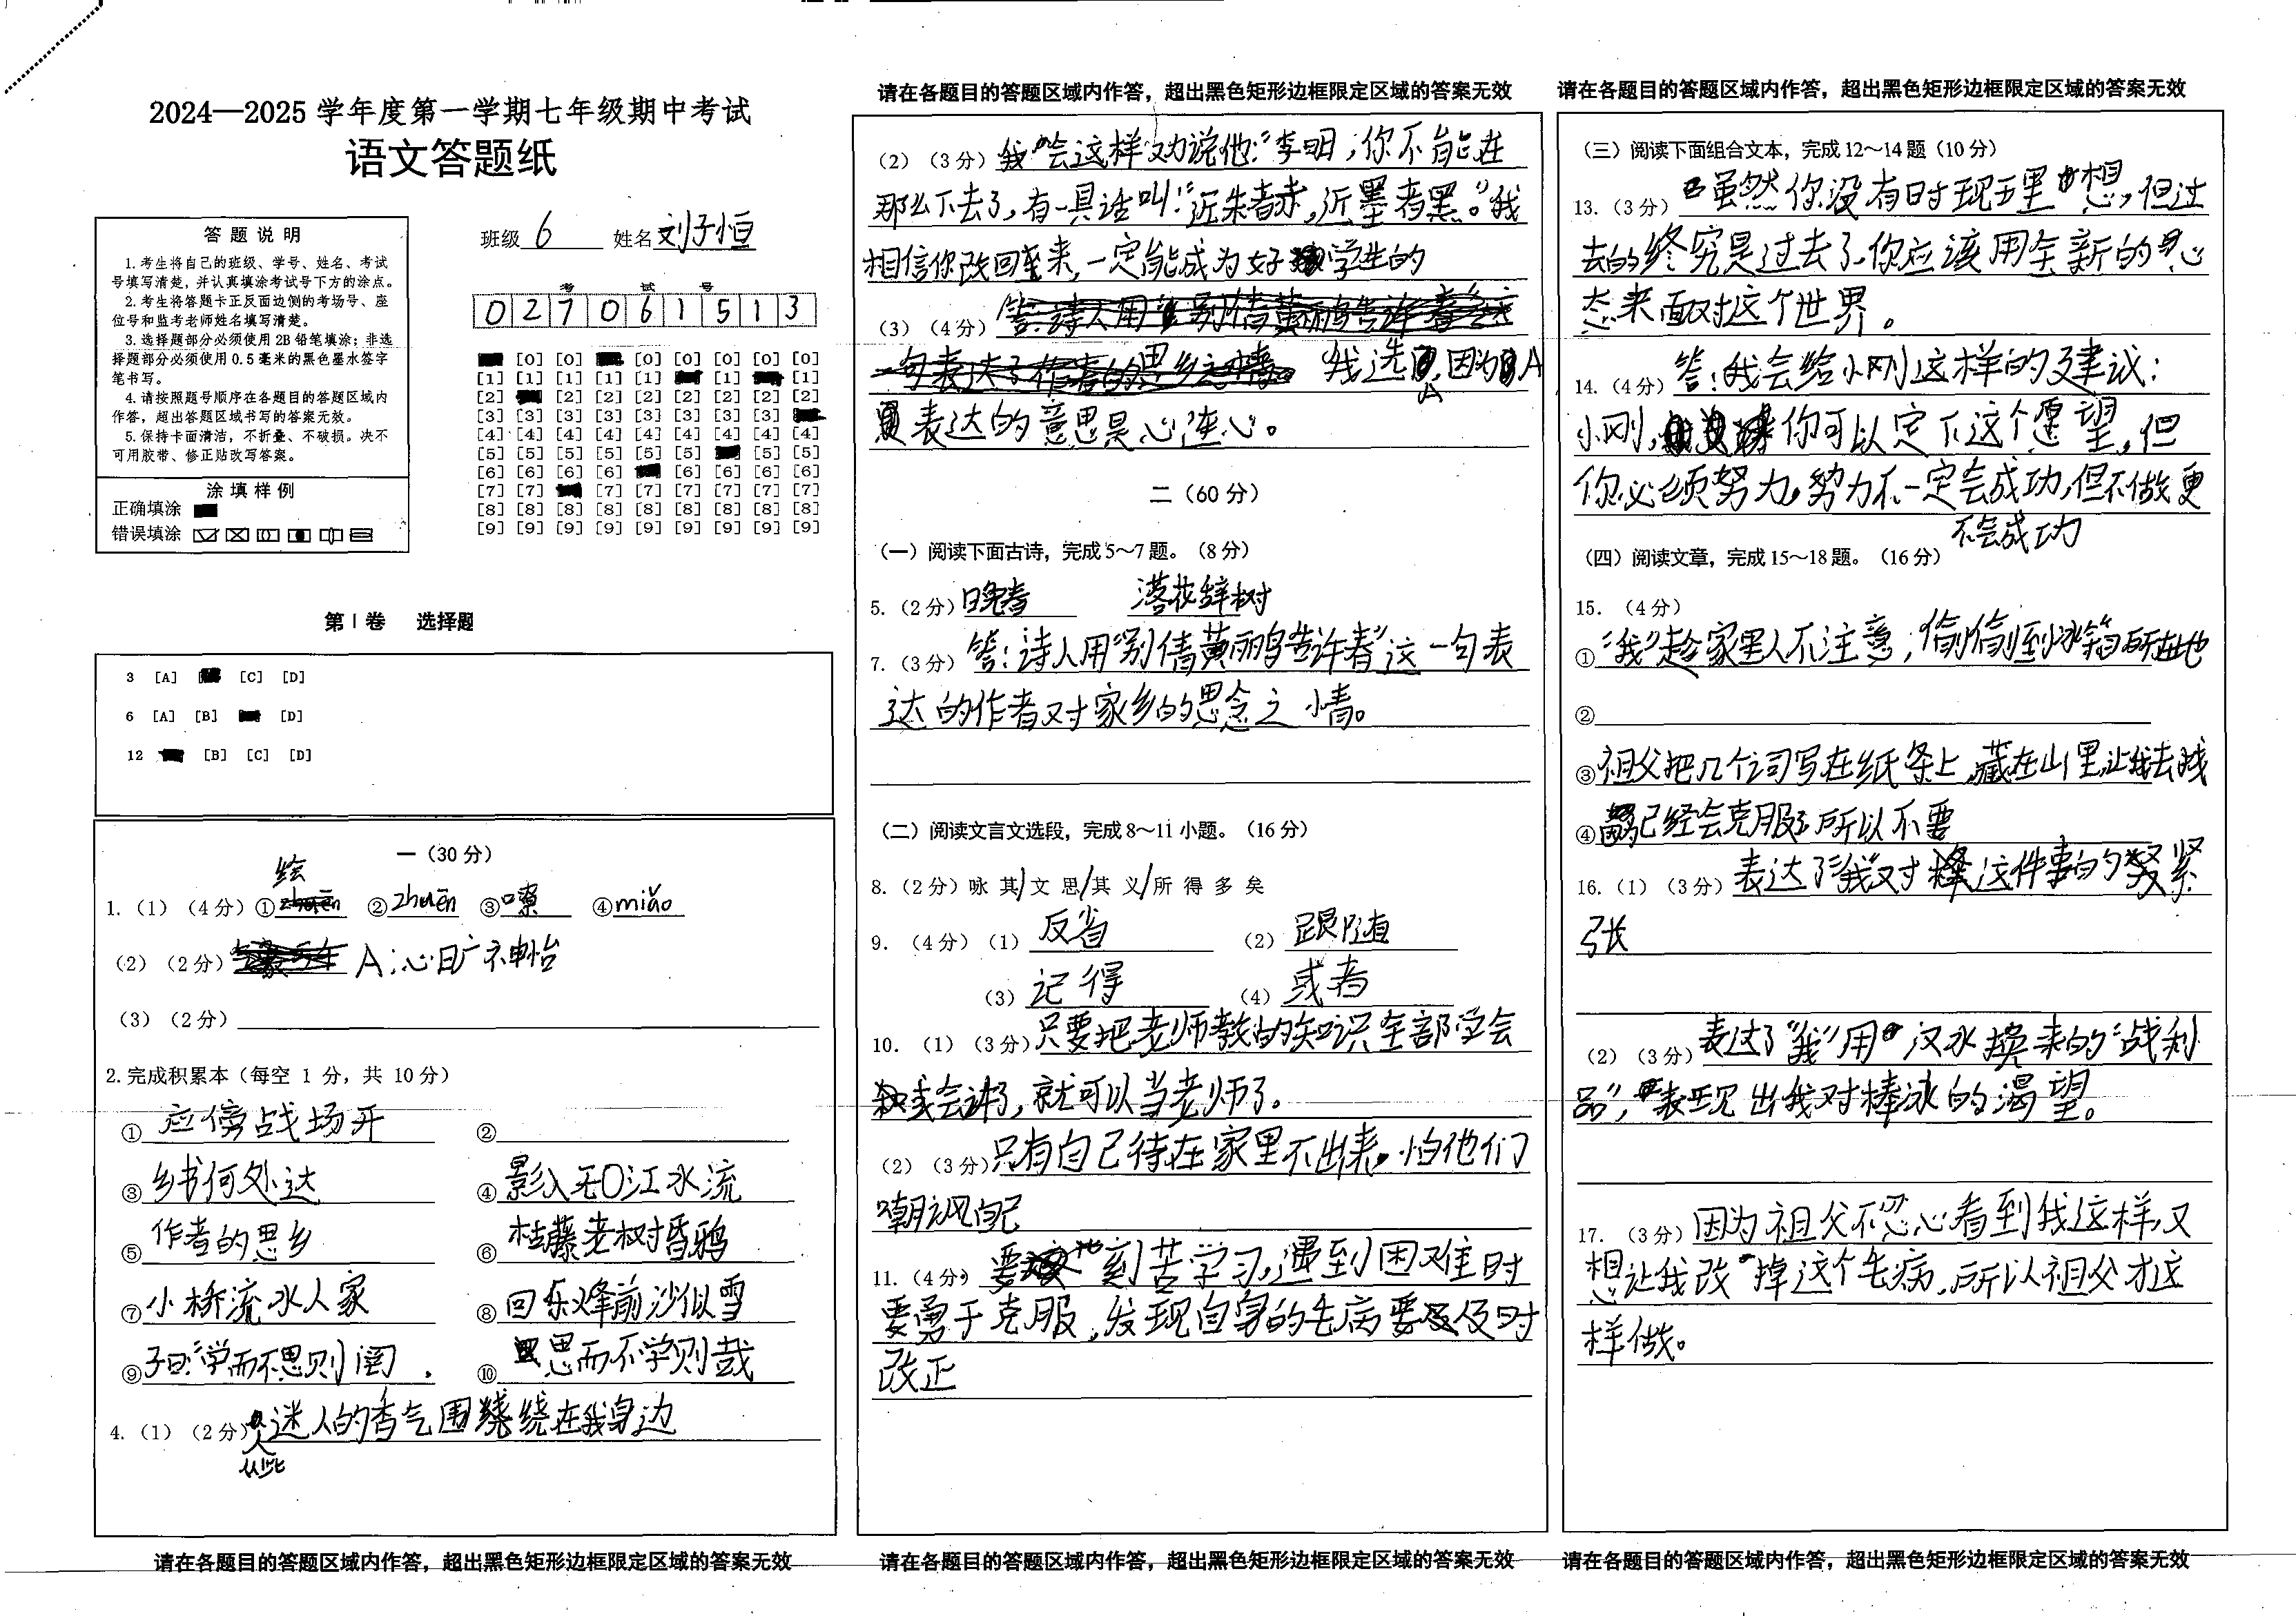 2024—2025 学年度第一学期七年级期中考试
语文答题纸
答 题 说 明
1. 考生将自己的班级、学号、姓名、考试
号填写清楚，并认真填涂考试号下方的涂点。
2. 考生将答题卡正反面边侧的考场号、座
位号和监考老师姓名填写清楚。
3. 选择题部分必须使用 2B 铅笔填涂；非选
择题部分必须使用 0.5 毫米的黑色墨水签字
笔书写。
4. 请按照题号顺序在各题目的答题区域内
作答，超出答题区域书写的答案无效。
5. 保持卡面清洁，不折叠、不破损。决不
可用胶带、修正贴改写答案。
涂 填 样 例
正确填涂
错误填涂
班级 6 姓名 刘子恒
考 试 号
0 2 7 0 6 1 5 1 3
[0] [0] [0] [0] [0] [0] [0]
[1] [1] [1] [1] [1] [1] [1]
[2] [2] [2] [2] [2] [2] [2] [2]
[3] [3] [3] [3] [3] [3] [3] [3]
[4] [4] [4] [4] [4] [4] [4] [4] [4]
[5] [5] [5] [5] [5] [5] [5] [5]
[6] [6] [6] [6] [6] [6] [6] [6]
[7] [7] [7] [7] [7] [7] [7] [7]
[8] [8] [8] [8] [8] [8] [8] [8] [8]
[9] [9] [9] [9] [9] [9] [9] [9] [9]
第 I 卷 选择题
3 [A] [C] [D]
6 [A] [B] [D]
12 [B] [C] [D]
一（30 分）
绘
1.（1）（4 分）① ②zhuēn ③嚓 ④miǎo
（2）（2 分） A:心旷神怡
（3）（2 分）
2. 完成积累本（每空 1 分，共 10 分）
①应傍战场开 ②
③乡书何处达 ④影入平江水流
⑤作者的思乡 ⑥枯藤老树昏鸦
⑦小桥流水人家 ⑧回乐烽前沙似雪
⑨子曰:“学而不思则罔. ⑩思而不学则哉
4.（1）（2 分）迷人的香气围绕在我身边
请在各题目的答题区域内作答，超出黑色矩形边框限定区域的答案无效
请在各题目的答题区域内作答，超出黑色矩形边框限定区域的答案无效
（2）（3 分）我会这样劝说他:“李明,你不能在
那么下去了,有一具话叫:“近朱者赤,近墨者黑。”我
相信你改回来,一定能成为好学生的
（3）（4 分）答:诗人用别倩黄鹂告许春这
一句表达了作者的思乡之情。 我选A,因为A
更表达的意思是心连心。
二（60 分）
（一）阅读下面古诗，完成 5～7 题。（8 分）
5.（2 分）晚春 落花辞树
7.（3 分）答:诗人用“别倩黄鹂告许春”这一句表
达的作者对家乡的思念之情。
（二）阅读文言文选段，完成 8～11 小题。（16 分）
8.（2 分）咏 其/文 思/其 义/所 得 多 矣
9.（4 分）（1）反省 （2）跟随
（3）记得 （4）或者
10.（1）（3 分）只要把老师教的知识全部学会
或会讲了,就可以当老师了。
（2）（3 分）只有自己待在家里不出来,怕他们
嘲讽自己
11.（4 分）要刻苦学习,遇到困难时
要勇于克服,发现自身的毛病要及时
改正
请在各题目的答题区域内作答，超出黑色矩形边框限定区域的答案无效
请在各题目的答题区域内作答，超出黑色矩形边框限定区域的答案无效
（三）阅读下面组合文本，完成 12～14 题（10 分）
13.（3 分）虽然你没有时现理想,但过
去的终究是过去了,你应该用全新的心
态来面对这个世界。
14.（4 分）答:我会给小刚这样的建议:
小刚,你可以定下这个愿望,但
你必须努力,努力不一定会成功,但不做更
不会成功
（四）阅读文章，完成 15～18 题。（16 分）
15.（4 分）
①“我”趁家里人不注意,偷偷到冰箱所在地
②
③祖父把几个词写在纸条上,藏在山里,让我去找
④已经会克服了所以不要
16.（1）（3 分）表达了“我”对这件事的紧
张
（2）（3 分）表达了“我”用汉水换来的“战利
品”,表现出我对棒冰的渴望。
17.（3 分）因为祖父不忍心看到我这样,又
想让我改掉这个毛病,所以祖父才这
样做。
请在各题目的答题区域内作答，超出黑色矩形边框限定区域的答案无效